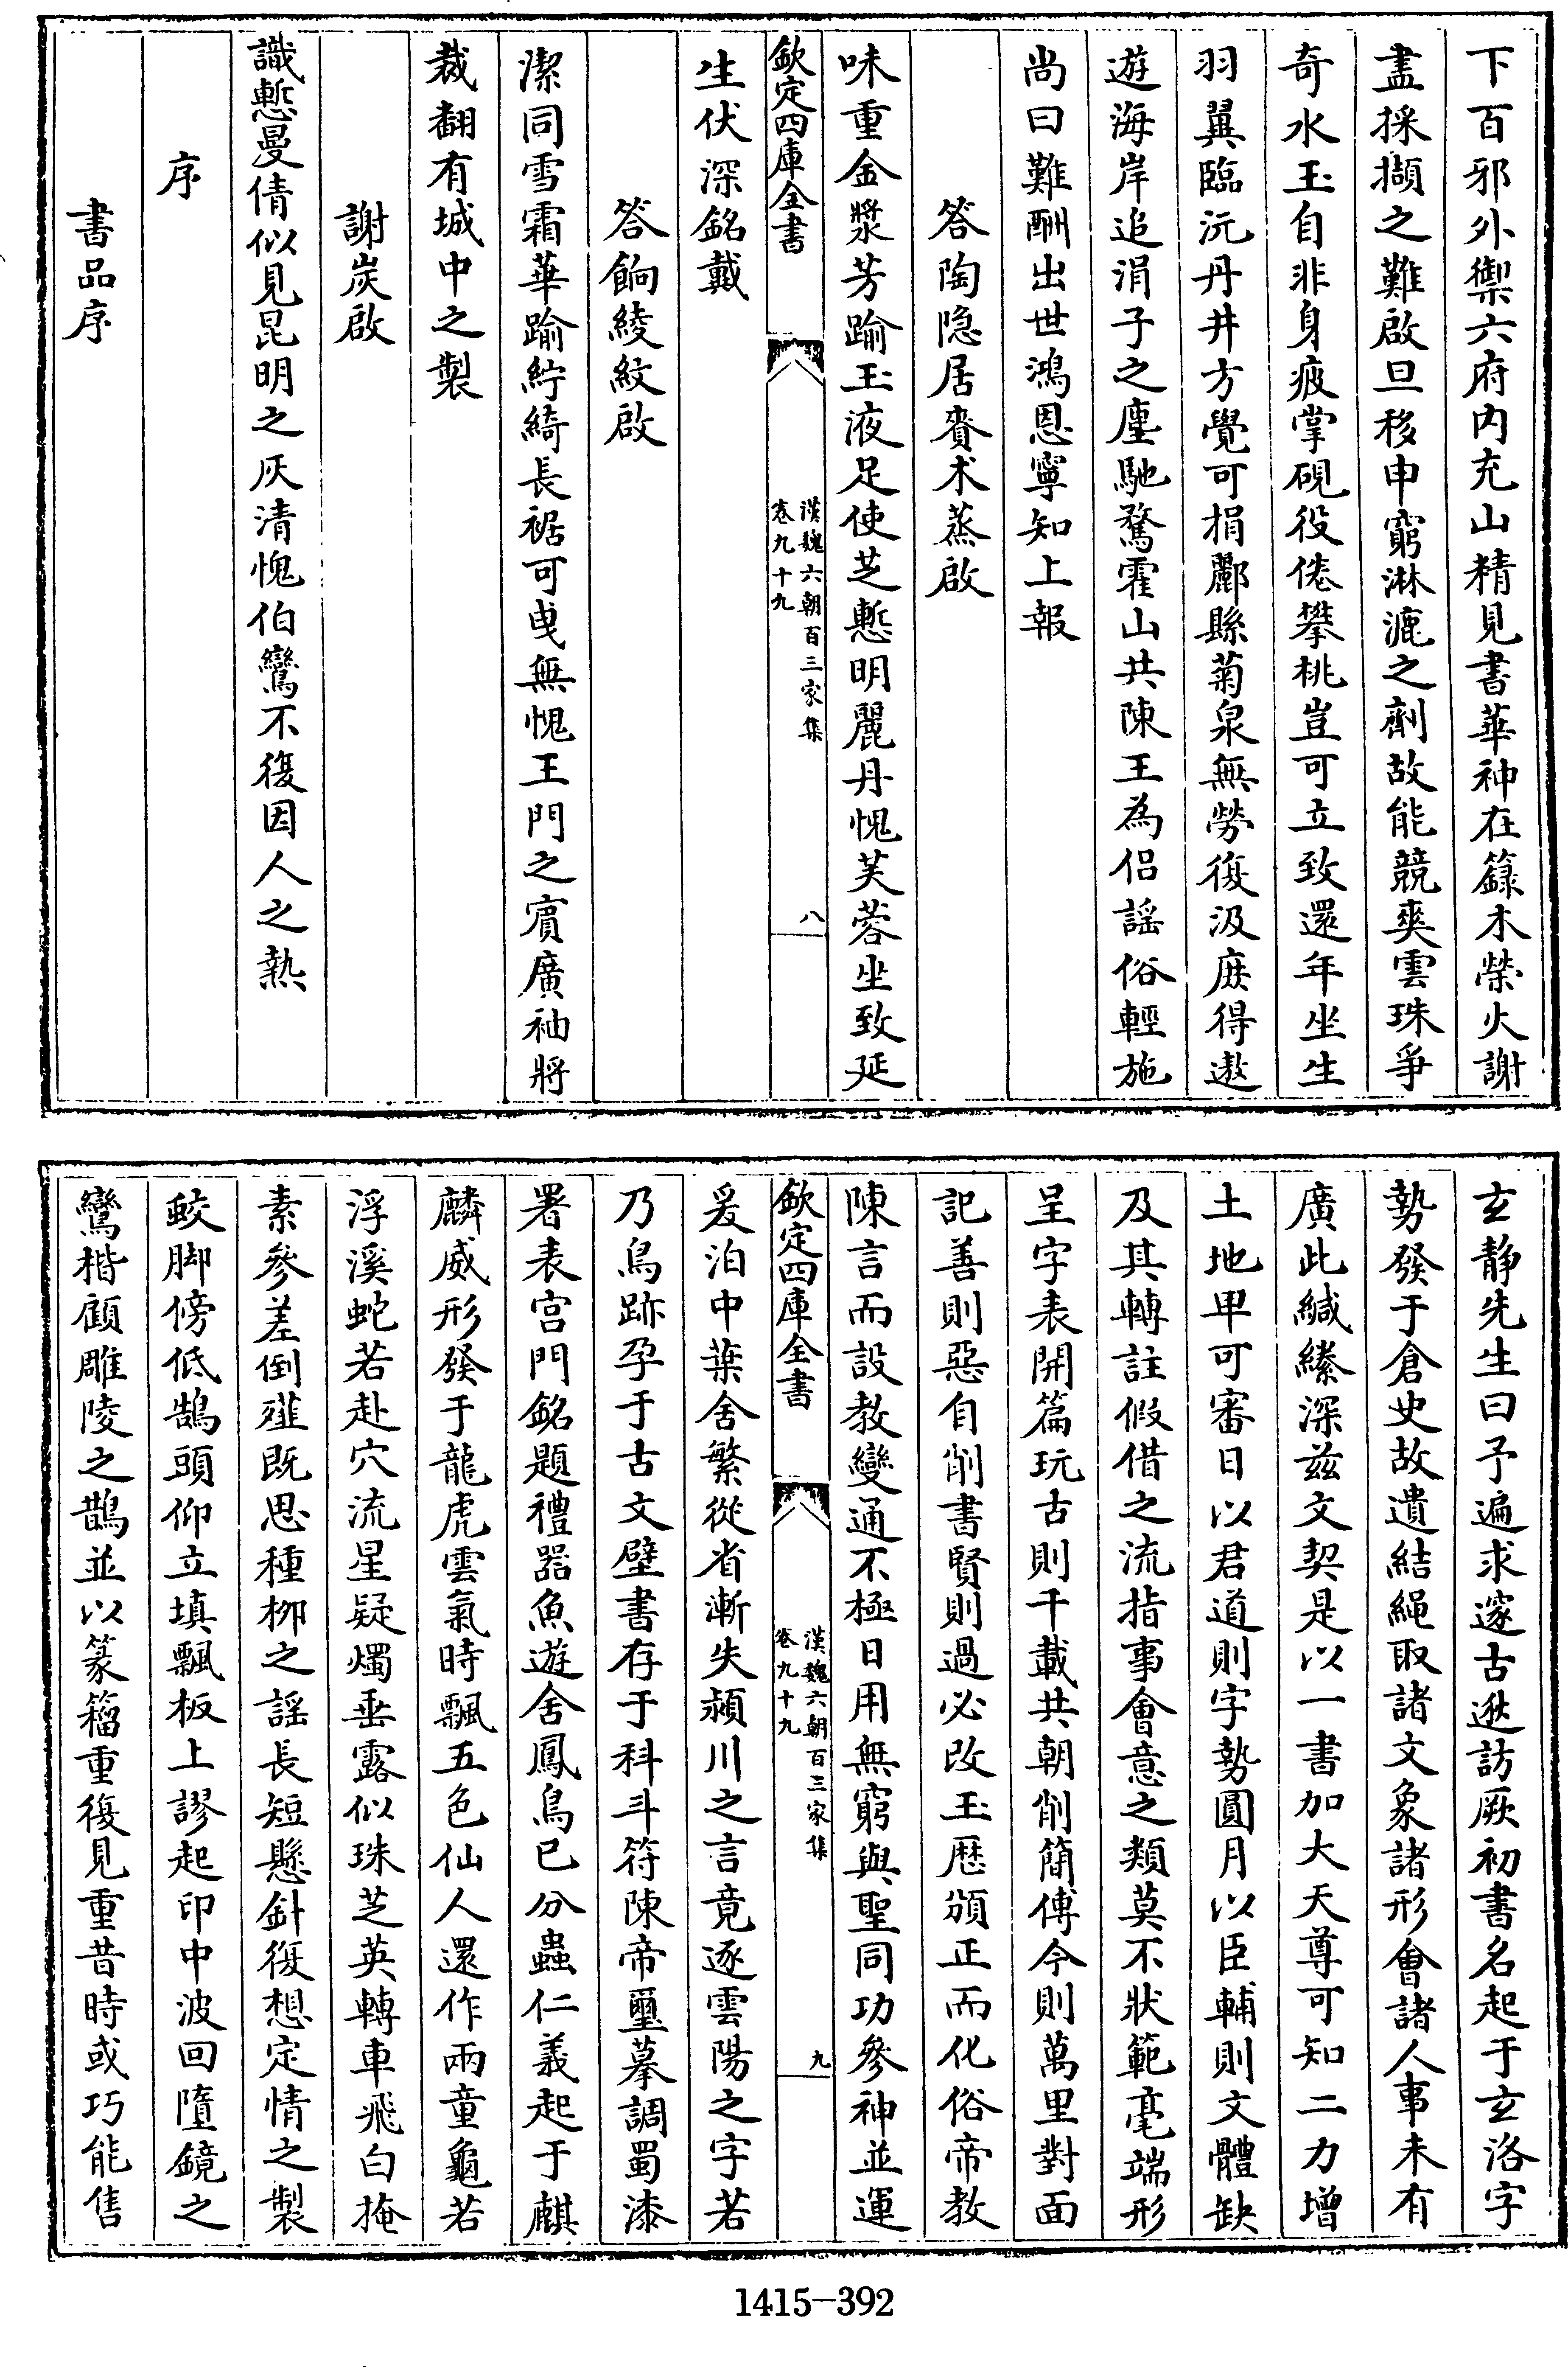 下百邪外禦六府内充山精見書華神在籙木榮火謝
盡採擷之難啟旦移申窮淋漉之劑故能競爽雲珠爭
奇水玉自非身疲掌硯役倦攀桃豈可立致還年坐生
羽翼臨沅丹井方覺可捐酈縣菊泉無勞復汲庶得遨
遊海岸追涓子之塵馳騖霍山共陳王為侣謡俗輕施
尚曰難酬出世鴻恩寧知上報
答陶隐居賚术蒸啟
味重金漿芳踰玉液足使芝慙明麗丹愧芙蓉坐致延
欽定四庫全書
漢魏六朝百三家集
卷九十九
八
生伏深銘戴
答餉綾紋啟
潔同雪霜華踰紵綺長裾可曵無愧王門之賓廣袖將
裁翻有城中之製
謝炭啟
識慙曼倩似見昆明之灰清愧伯鸞不復因人之熱
序
書品序
玄静先生曰予遍求邃古逖訪厥初書名起于玄洛字
勢發于倉史故遺結繩取諸文象諸形會諸人事未有
廣此緘縢深兹文契是以一書加大天尊可知二力增
土地卑可審日以君道則字勢圓月以臣輔則文體缺
及其轉註假借之流指事會意之類莫不狀範毫端形
呈字表開篇玩古則千載共朝削簡傳今則萬里對面
記善則惡自削書賢則過必改玉厯頒正而化俗帝教
陳言而設教變通不極日用無窮與聖同功參神並運
欽定四庫全書
漢魏六朝百三家集
卷九十九
九
爰泊中葉舍繁從省漸失潁川之言竟逐雲陽之字若
乃鳥跡孕于古文壁書存于科斗符陳帝璽摹調蜀漆
署表宫門銘題禮器魚遊舍鳳鳥已分蟲仁義起于麒
麟威形發于龍虎雲氣時飄五色仙人還作兩童龜若
浮溪蛇若赴穴流星疑燭垂露似珠芝英轉車飛白掩
素參差倒薤既思種柳之謡長短懸針復想定情之製
蚊脚傍低鵠頭仰立填飄板上謬起印中波回墮鏡之
鸞楷顧雕陵之鵲並以篆籀重復見重昔時或巧能售
1415-392